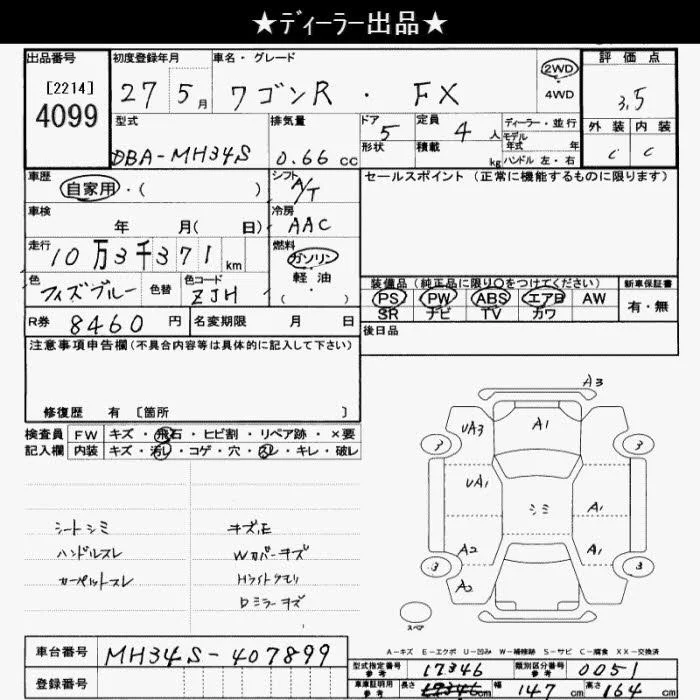 ★ディーラー出品★
出品番号
[2214]
4099
初度登録年月
27 5月
車名・グレード
ワゴンR・FX
2WD
4WD
評価点
3.5
外装 内装
C C
型式
DBA-MH34S
排気量
0.66 cc
ドア 5
形状
定員 4人
積載 kg
ディーラー・並行
モデル年式 年
ハンドル 左・右
車歴
自家用・( )
シフト
A/T
セールスポイント(正常に機能するものに限ります)
車検
年 月( 日)
冷房
AAC
走行
10万3千371km
燃料
ガソリン
軽・油
( )
色
フィズブルー
色替
色コード
ZJH
装備品(純正品に限り○をつけてください)
PS PW ABS エアB AW
SR ナビ TV カワ
新車保証書
有・無
R券 8460円
名変期限 月 日
後日品
注意事項申告欄(不具合内容等は具体的に記入して下さい)
修復歴 有〔箇所 〕
検査員記入欄
FW キズ・飛石・ヒビ割・リペア跡・×要
内装 キズ・汚レ・コゲ・穴・スレ・キレ・破レ
シートシミ
ハンドルスレ
カーペットスレ
キズ、E
Wカバーキズ
Hライトクモリ
Dミラーキズ
A3
UA3 A1
3 3
UA1
シミ
A1
A2 A1
3 3
A2
スペア
A-キズ E-エクボ U-凹み W-補修跡 S-サビ C-腐食 XX-交換済
車台番号
MH34S-407899
登録番号
型式指定番号 参考
17346
類別区分番号 参考
0051
車庫証明用 参考
長さ 17346 cm
幅 147cm
高さ 164cm